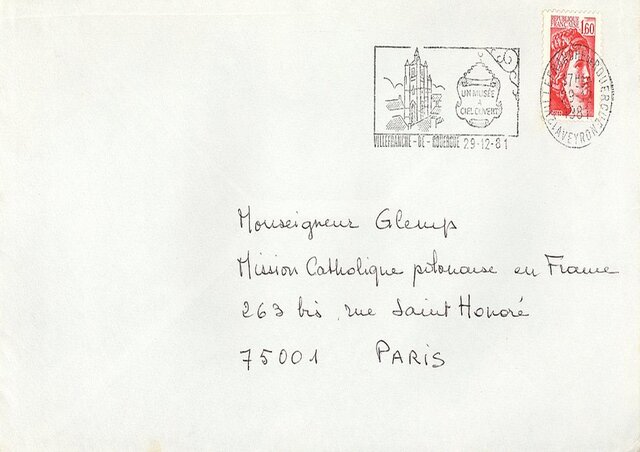 RÉPUBLIQUE
FRANÇAISE
1,60
UN MUSÉE
A
CIEL OUVERT
VILLEFRANCHE - DE - ROUERGUE 29-12-81
AVEYRON
Monseigneur Glemp
Mission Catholique polonaise en France
263 bis, rue Saint Honoré
75001 PARIS